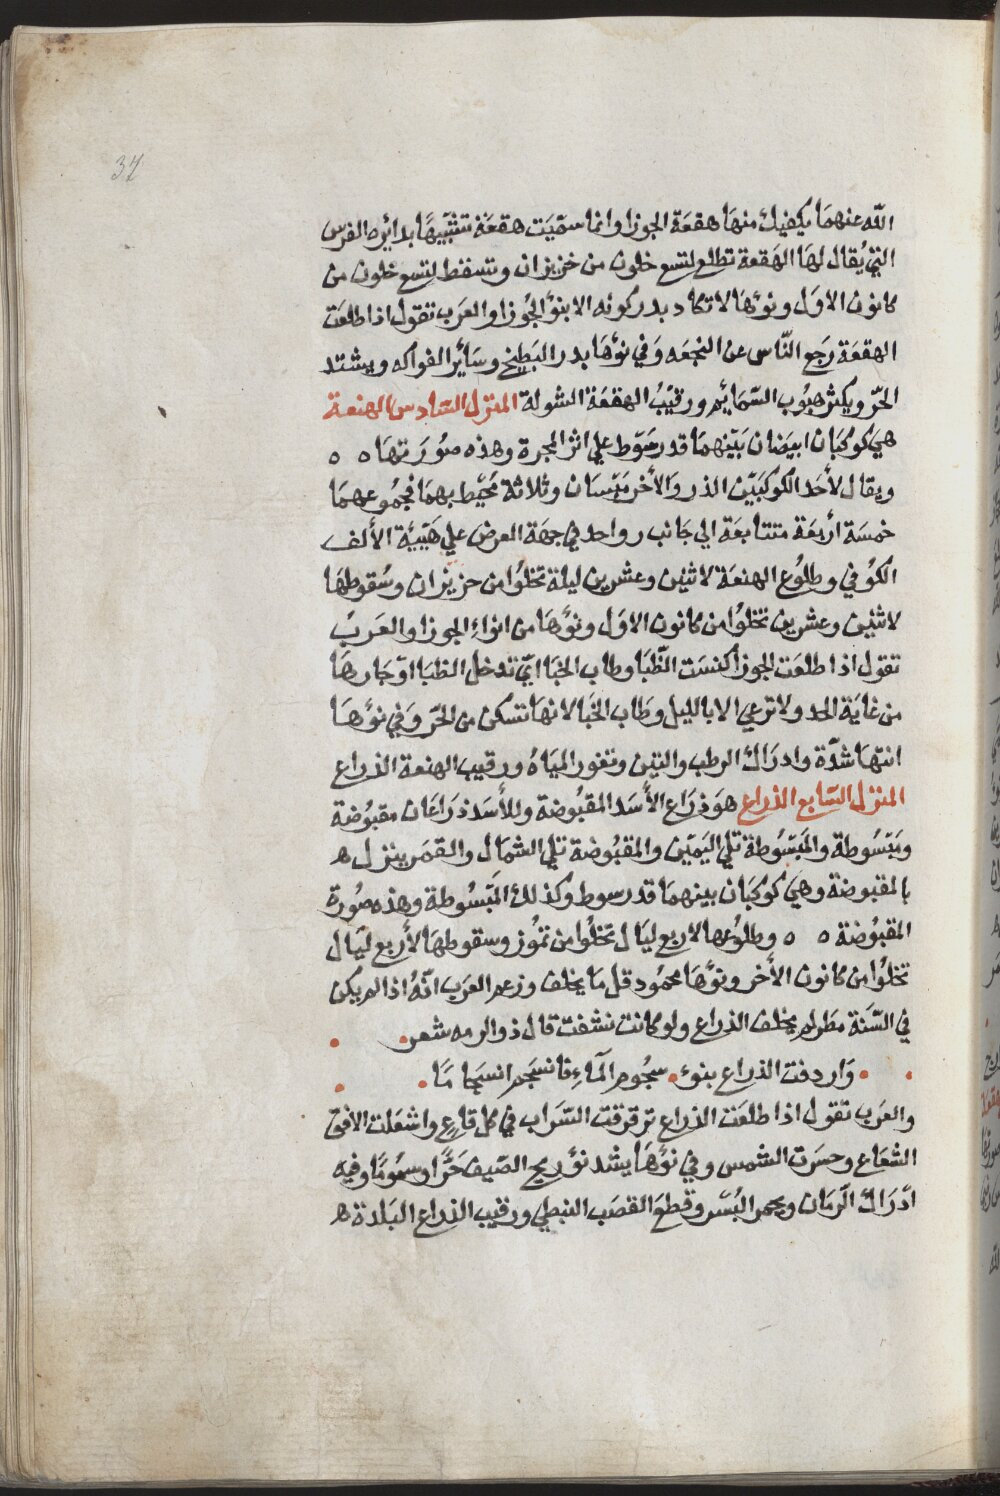 37
الله عنهما يكفيك منها هقعة الجوزا وانما سميت هقعة تشبيها بدايره الفرس
التي يُقال لها الهَقعة تطلع لتسع خلون من حزيزان وتسقط لتسع خلون من
كانون الاوَل ونوُها لا تكاد بدركونه الا بنوُ الجُوزا والعرَب تقول اذا طلعَت
الهقعَة رَجع النّاس عن النجعَه وَفي نوُها بدر البَطيخ وسَايُر الفواكه ويشتد
الحرّ ويكثر هبُوب السّمَايُم ورقيبُ الهقعَة الشولة المنزل السّادس الهنعة
هيَ كوكبَان ابيضَان بَيْنهمَا قدر سَوْط علي اثر المجرة وهذه صُورَتهَا ٥ ٥
ويقال لأحَد الكوكبَيْن الذر وَالأخر مَيْسَان وثلاثة مُحيْط بهمَا فجمُوعهمَا
خمسَة أربعَة متتابعَة الي جَانب واحد في جهَة العرض علي هَيئة الألف
الكوُفي وطلوُع الهنعَة لاثنين وعشرين ليلة تخلوُا من حزيزان وسُقوطهَا
لاثنين وعشرين تخلوُا من كانون الاول ونوُهَا من انواء الجوزا والعَرَبُ
تقول اذا طلعَت الجوزا كنسَت الظّبَا وطاب الخبَا ايّ تدخل الظبَا اوْجَارهَا
من غايَة الحد ولا ترعي الا بالليل وطَاب الخَبا لانهَا تسكن من الحَرّ وَفي نوُهَا
انتهَا شدّة وادرَاك الرطب والتين وتغور الميَاهُ ورقيب الهنعة الذراع
المنزل السّابع الذراع هوَ ذرَاع الأسَد المقبُوضة وللأسَد ذرَاعَان مقبُوضة
ومَبْسُوطة والمَبْسُوطة تلي اليَميْن والمقبُوضة تلي الشمَال والقمَر ينزل ه
بالمقبوضة وهيَ كوكبَان بينهمَا قدر سوط وكذلك المَبْسُوطة وهذه صُورة
المقبُوضة ٥ ٥ وطلوُعها لاربع ليَال تخلوُا من تموُز وسقوطهَا لأربع ليَال
تخلوُا من كانون الأخر ونوُهَا محمُود قل مَا يخلف وزعم العرَب انّهُ اذا لم يكن
في السّنَة مطَر لم يخلف الذراع ولو كانت نشفت قال ذو الرمه شعر
وَاردفت الذراع بنوء سجُوم المَاءِ فانسَجم انسجَامَا
والعرَب تقول اذا طلعَت الذراع ترقرقت السّرَاب في كل قاعٍ واشعَلت الافق
الشعَاع وحسَرت الشمس وفي نوُهَا يشد نوُ ريح الصّيف حَرًّا وسمُومًا وفيه
ادْرَاك الرّمَان ويحمر البُسْر وقطعَ القصَب النبطي ورقيب الذراع البَلدة ه